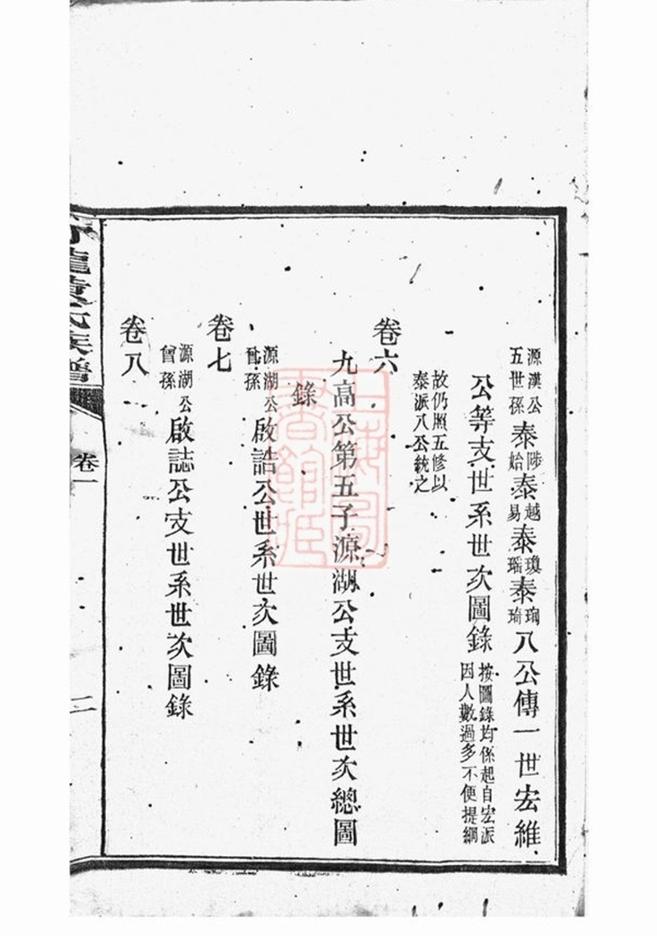 源漢公五世孫泰陟始泰越易泰瓊瑶泰瑞琦八公傳一世宏維
公等支世系世次圖錄按圖錄均係起自宏派因人數過多不便提綱
故仍照五修以泰派八公統之
卷六
九高公第五子源湖公支世系世次總圖
錄
卷七
源湖公曾孫啟誥公世系世次圖錄
卷八
源湖公曾孫啟誌公支世系世次圖錄
龍黃氏族譜
卷一
二